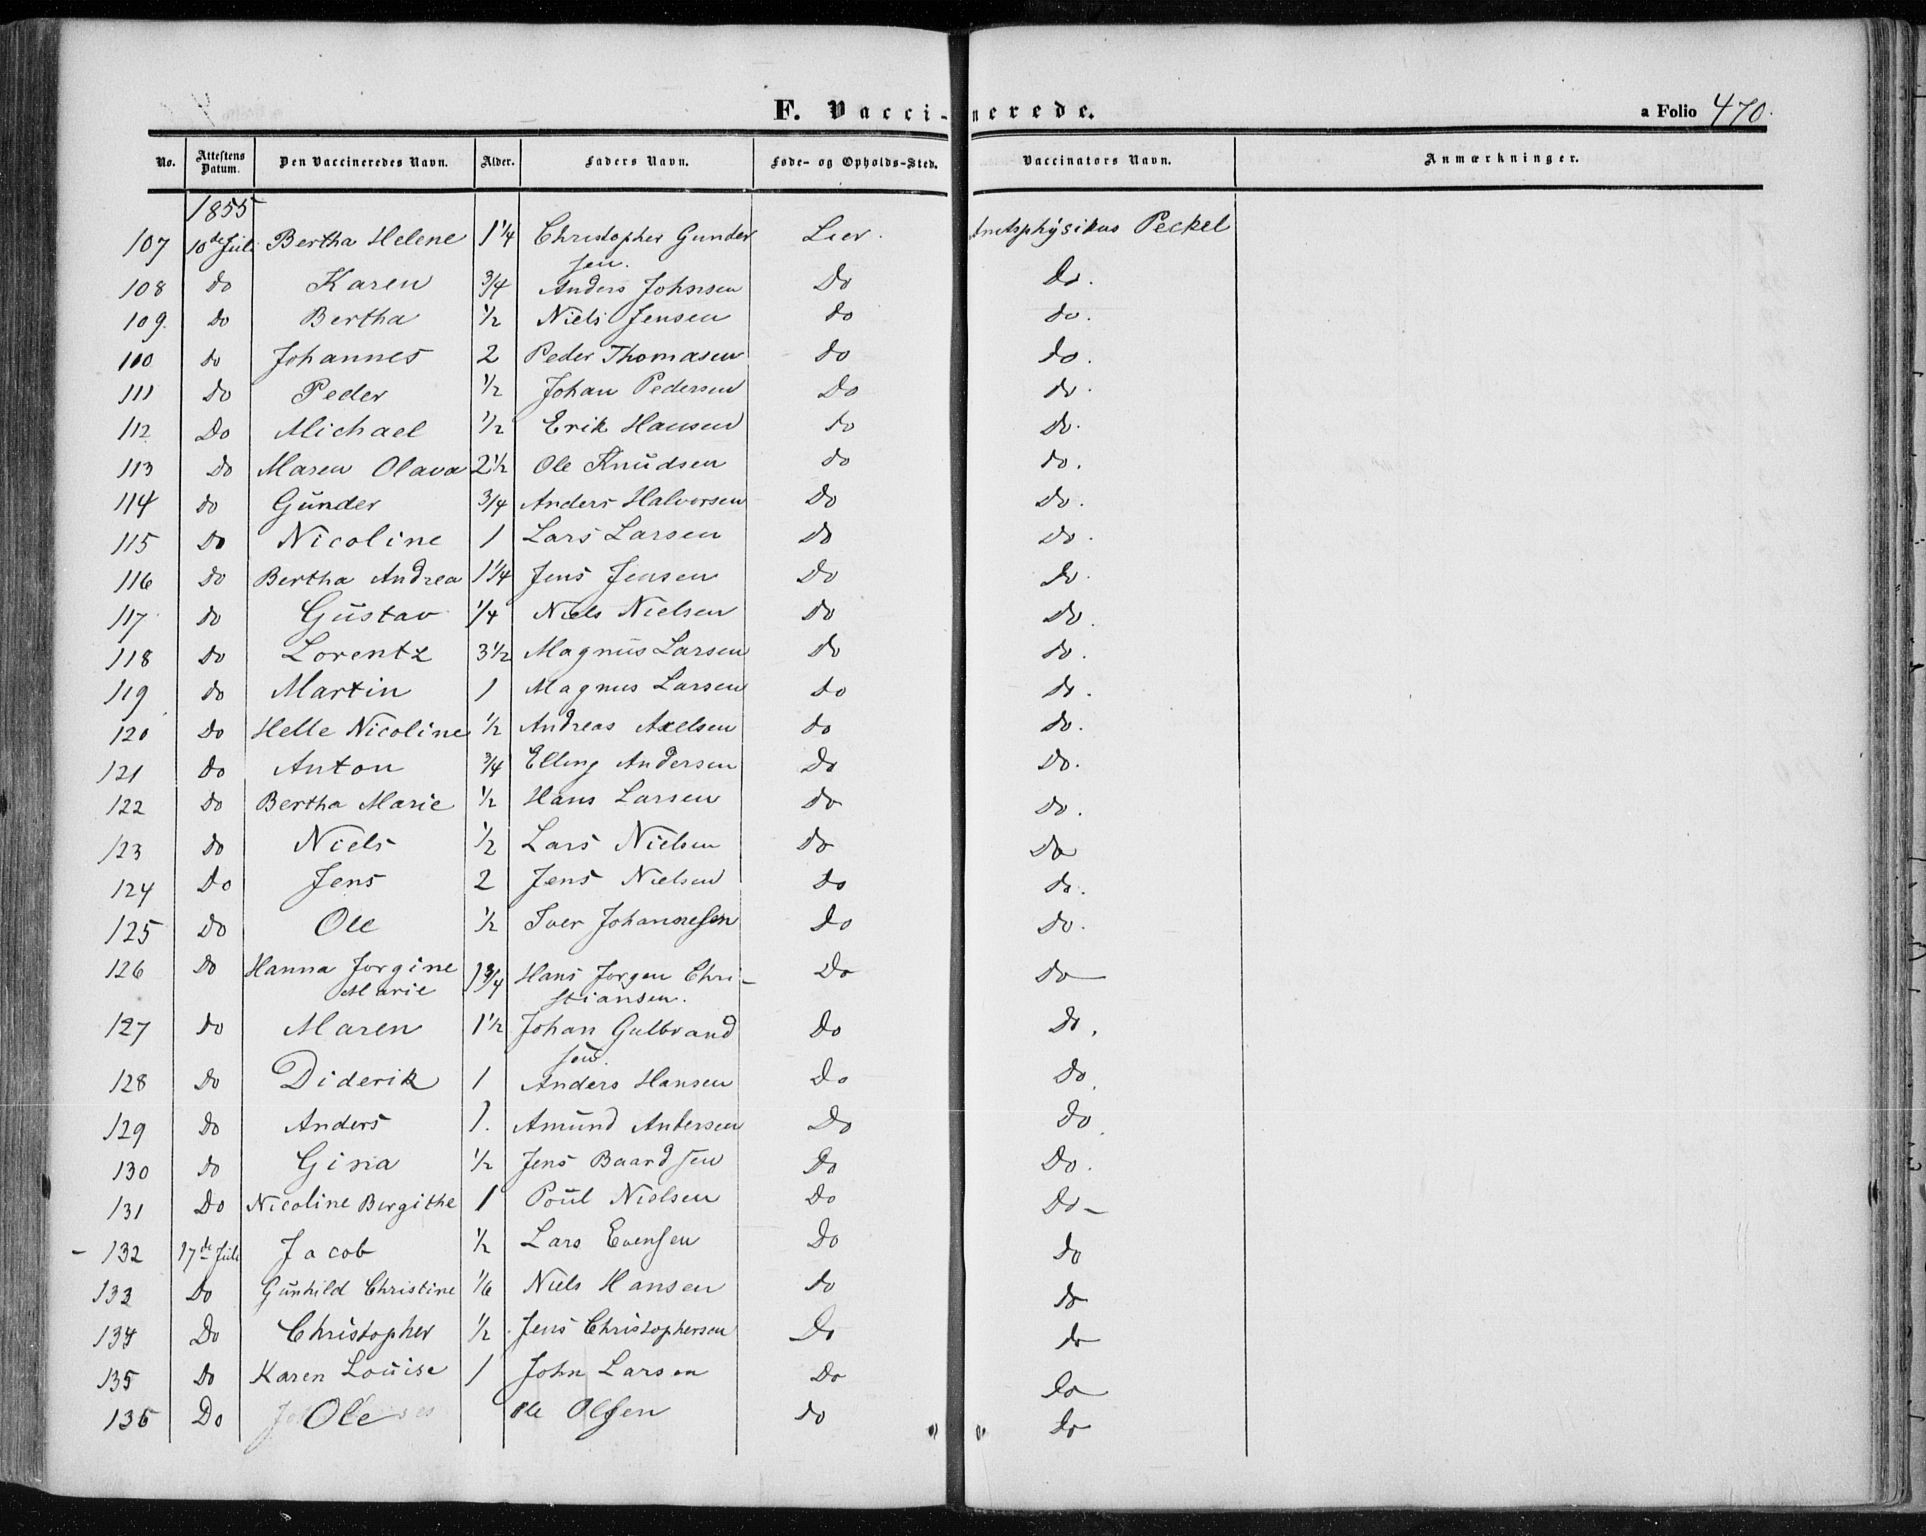 F. Vaccinerede. a Folio 470.
No. Attestens Datum. Den Vaccineredes Navn. Alder. Faders Navn. Føde- og Opholds-Sted. Vaccinators Navn. Anmærkninger.
1855
107 10de Juli Bertha Helene 1 1/4 Christopher Gundersen. Lier. Amtsphysikus Peckel
108 do Karen 3/4 Anders Johnsen Do Do.
109. Do Bertha 1/2 Niels Jensen do do.
110 do Johannes 2 Peder Thomasen do do.
111 Do Peder 1/2 Johan Pedersen Do do.
112 Do Michael 1/2 Erik Hansen do do.
113 Do Maren Olava 2 1/2 Ole Knudsen do do.
114 do Gunder 3/4 Anders Halvorsen Do Do.
115 Do Nicoline 1 Lars Larsen Do Do.
116 Do Bertha Andrea 1 1/4 Jens Jensen Do Do.
117. do Gustav 1/4 Niels Nielsen Do Do.
118 Do Lorentz 3 1/2 Magnus Larsen Do do.
119 do Martin 1 Magnus Larsen Do do.
120 Do Helle Nicoline 1/2 Andreas Axelsen do do.
121 do Anton 3/4 Elling Andersen Do Do.
122 Do Bertha Marie 1/2 Hans Larsen do do.
123 do Niels 1/2 Lars Nielsen do Do
124 Do Jens 2 Jens Nielsen do do.
125 Do Ole 1/2 Iver Johannessen Do Do.
126 Do Hanna Jorgine Marie 1 3/4 Hans Jorgen Christiansen. Do do
127 do Maren 1 1/2 Johan Gulbrandsen. Do Do.
128 Do Diderik 1 Anders Hansen Do Do
129 Do Anders 1. Amund Andersen Do Do
130 do Gina 1/2 Jens Baardsen Do Do.
131 Do Nicoline Birgithe 1 Poul Nielsen Do Do-
- 132 17de Juli Jacob 1/2 Lars Evensen Do do
133 Do Gunhild Christine 1/6 Niels Hansen do do
134 Do Christopher 1/2 Jens Christophersen Do do
135 do Karen Louise 1 John Larsen Do Do
136 Do Ole Ole Olsen do do